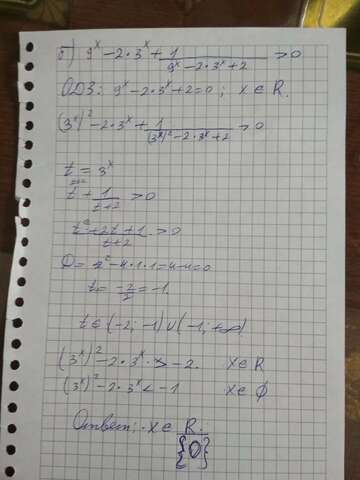 б) 9^x - 2·3^x + 1/(9^x - 2·3^x + 2) > 0
ОДЗ: 9^x - 2·3^x + 2 = 0; x ∈ R.
(3^x)^2 - 2·3^x + 1/((3^x)^2 - 2·3^x + 2) > 0
t = 3^x
t + 1/(t+2) > 0
(t^2 + 2t + 1)/(t+2) > 0
D = 2^2 - 4·1·1 = 4 - 4 = 0
t = -2/2 = -1.
t ∈ (-2; -1) ∪ (-1; +∞)
(3^x)^2 - 2·3^x > -2. x ∈ R
(3^x)^2 - 2·3^x < -1 x ∈ ∅
Ответ: x ∈ R.
{0}